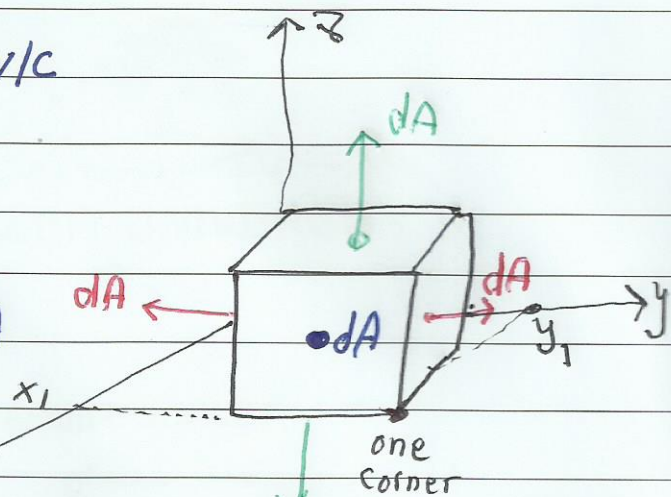 z
/C
dA
dA
dA
dA
y
y₁
x₁
one
corner